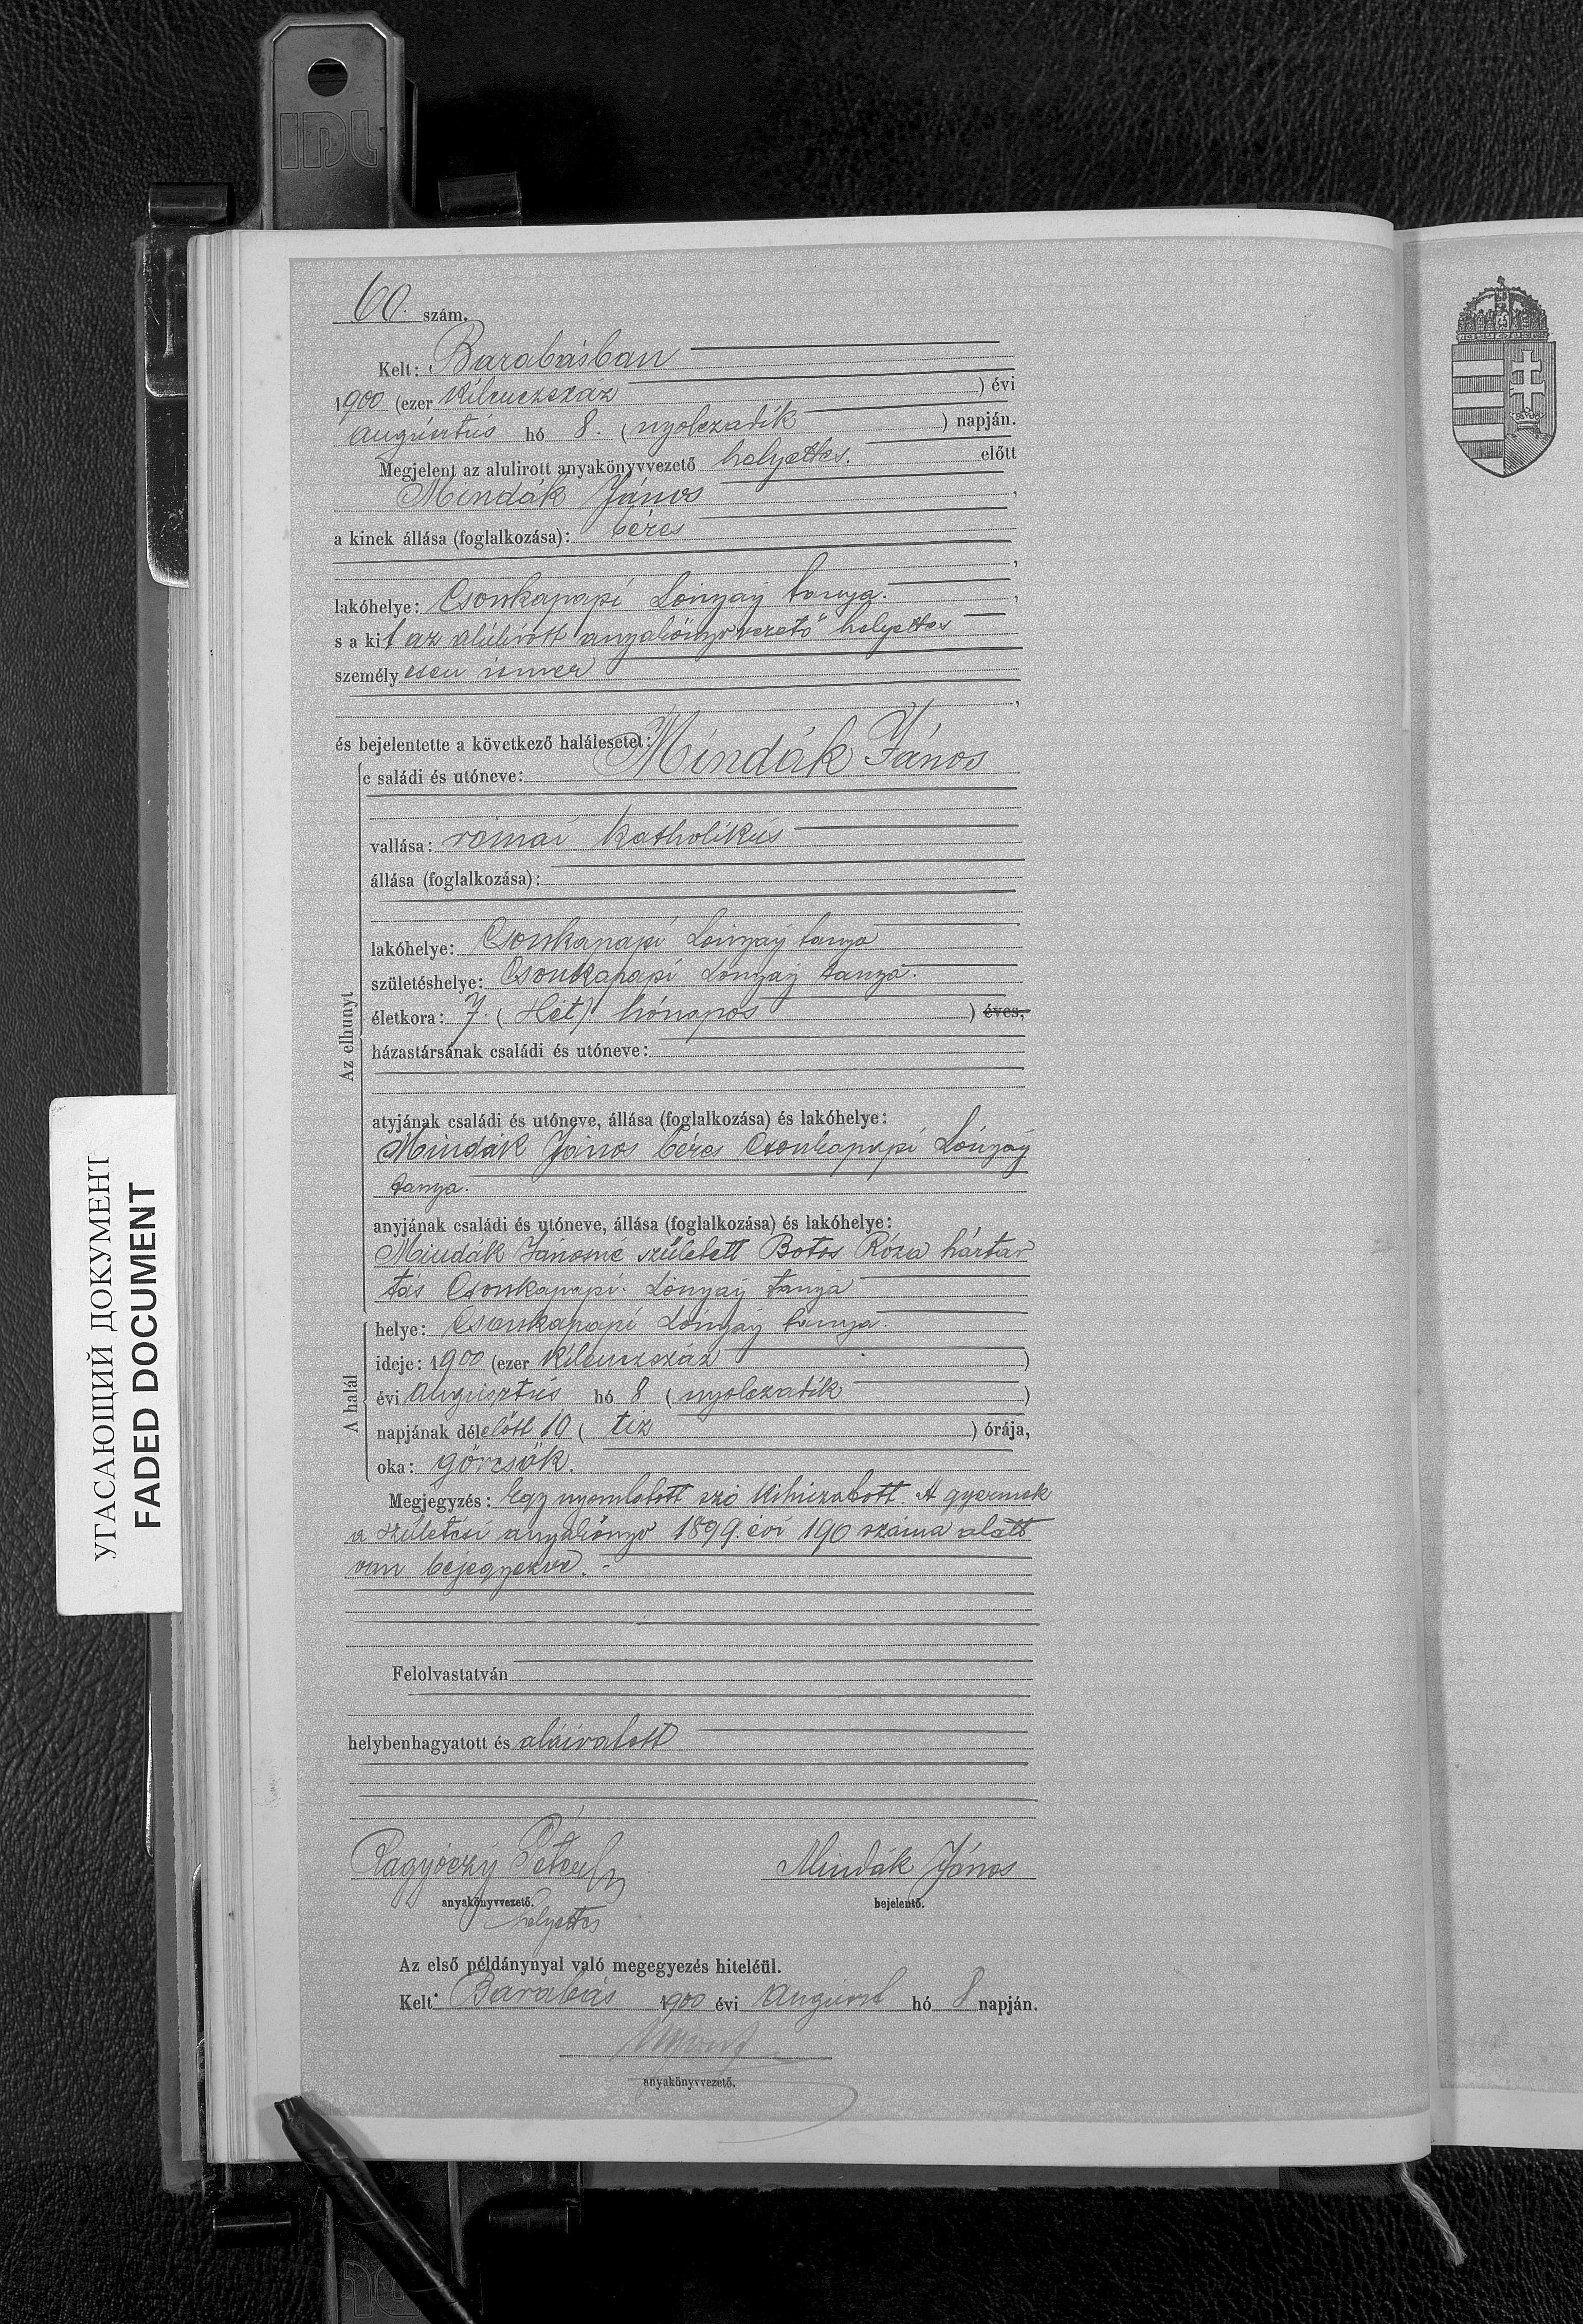 IDL
60. szám.
Kelt: Barabásban
1900 (ezer kilenczszáz) évi
augusztus hó 8. (nyolczadik) napján.
Megjelent az alulirott anyakönyvvezető helyettes. előtt
Mindák János,
a kinek állása (foglalkozása): béres
,
lakóhelye: Csonkapapi Lónyay tanya.,
s a kit az alulirott anyakönyvvezető helyettes
személyesen ismer
,
és bejelentette a következő halálesetet:
családi és utóneve: Mindák János
vallása: római katholikus
állása (foglalkozása):
lakóhelye: Csonkapapi Lónyay tanya
születéshelye: Csonkapapi Lónyay tanya.
életkora: 7. (Hét) hónapos ) éves,
házastársának családi és utóneve:
Az elhunyt
atyjának családi és utóneve, állása (foglalkozása) és lakóhelye:
Mindák János béres Csonkapapi Lónyay
tanya.
anyjának családi és utóneve, állása (foglalkozása) és lakóhelye:
Mindák Jánosné született Botos Róza háztar
tás Csonkapapi Lónyay tanya
helye: Csonkapapi Lónyay tanya.
ideje: 1900 (ezer kilenczszáz)
évi augusztus hó 8 (nyolczadik)
A halál
napjának délelőtt 10 (tiz) órája,
oka: görcsök.
Megjegyzés: Egy nyomtatott szó kihuzatott. A gyermek
a születési anyakönyv 1899. évi 190 száma alatt
van bejegyezve.
Felolvastatván
helybenhagyatott és aláiratott
Péter Mindák János
anyakönyvvezető. bejelentő.
helyettes
Az első példánynyal való megegyezés hiteléül.
Kelt: Barabás 1900 évi august hó 8 napján.
anyakönyvvezető.
УГАСАЮЩИЙ ДОКУМЕНТ
FADED DOCUMENT